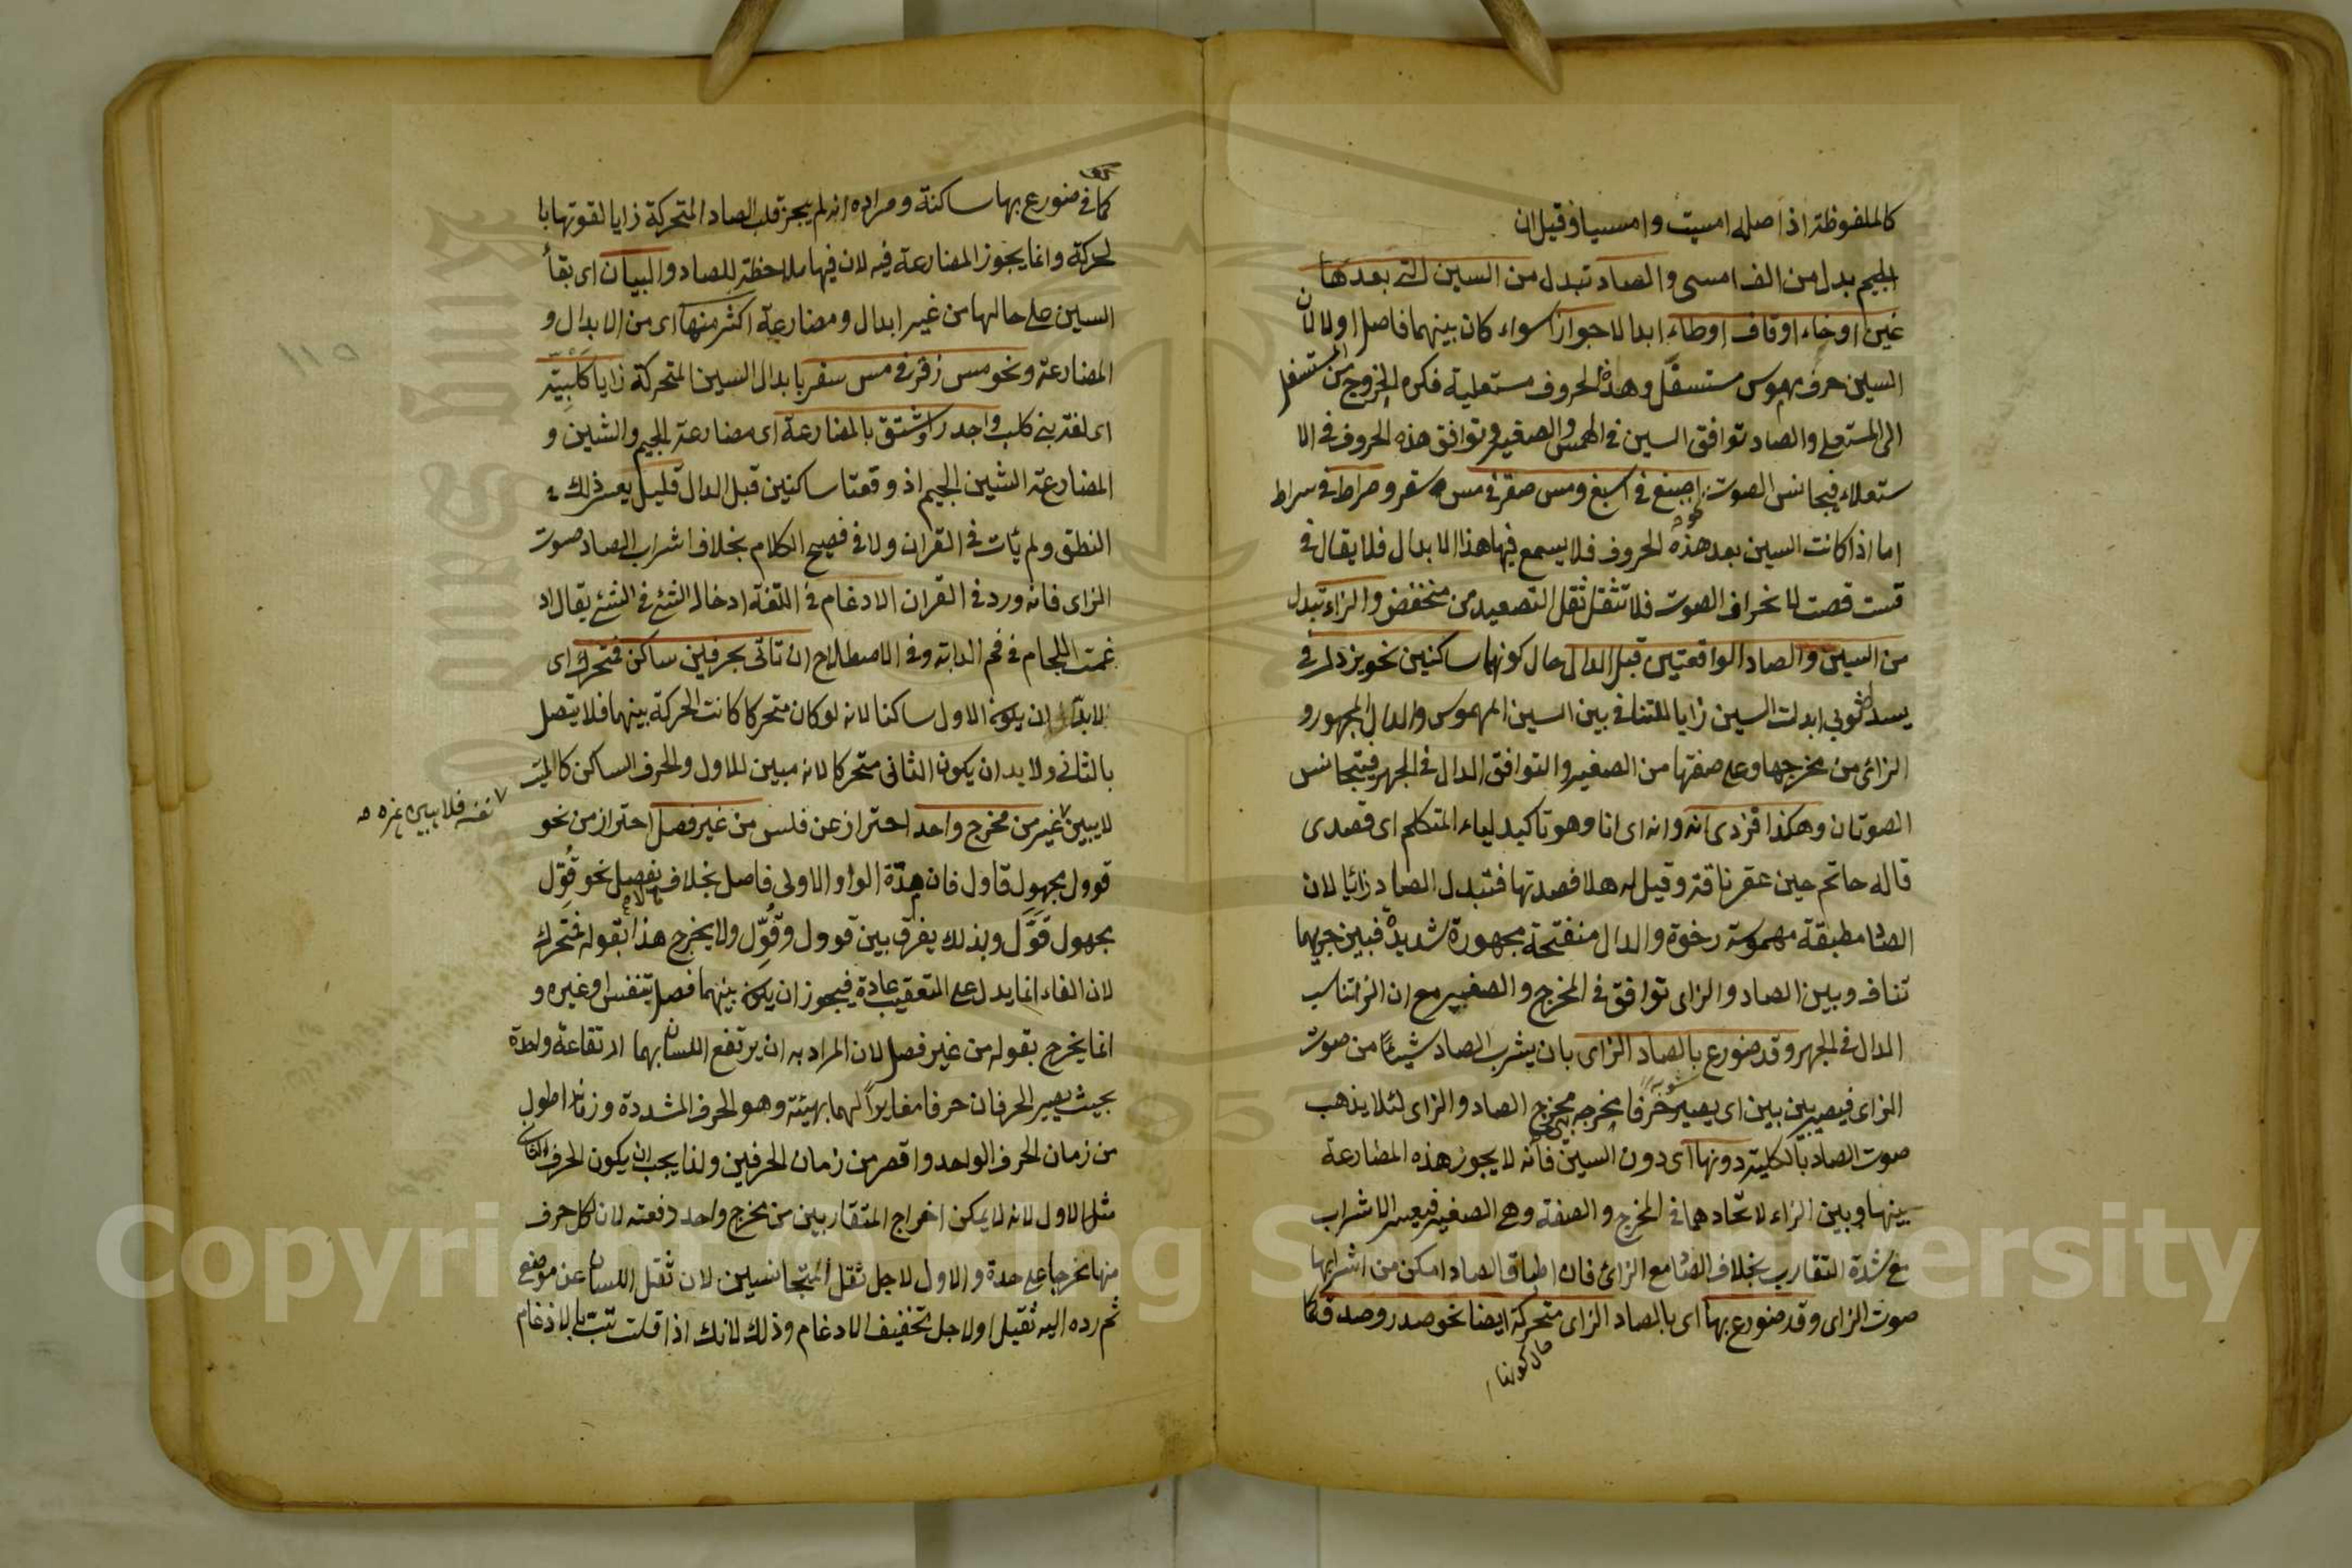 كالملفوظة اذ اصله امسيت وامسيا وقيل ان
الجيم بدل من الف امسى والصاد تبدل من السين التي بعدها
غين او خاء او قاف او طاء ابدالا جوازا سواء كان بينهما فاصل اولا لان
السين حرف مهموس مستسفل وهذه الحروف مستعلية فكره الخروج من المستسفل
الى المستعلى والصاد توافق السين في الهمس والصغير وتوافق هذه الحروف في الا
ستعلاء فيجانس الصوت نحو اصبغ في اسبغ ومس صقر في مس سقر وصراط في سراط
اما اذا كانت السين بعد هذه الحروف فلا يسمع فيها هذا الابدال فلا يقال في
قست قصت لانحراف الصوت فلا تثقل ثقل التصعيد من منخفض والزاء تبدل
من السين والصاد الواقعتين قبل الدال حال كونهما ساكنين نحو يزدل في
يسدل ثوبه ابدلت السين زايا للتنافي بين السين المهموس والدال المجهور و
الزائ من مخرجها وعلى صفتها من الصغير والتوافق الدال في الجهر فيتجانس
الصوتان وهكذا فزدى انه وانه اى انا وهو تاكيد لياء المتكلم اى قصدى
قاله حاتم حين عقر ناقته وقيل له هلا فصدتها فتبدل الصاد زائا لان
الصاد مطبقة مهموسة رخوة والدال منفتحة مجهورة شديدة فبين جرسهما
تناف وبين الصاد والزاى توافق في المخرج والصغير مع ان الزا تناسب
الدال في الجهر وقد ضورع بالصاد الزاى بان يشرب الصاد شيئا من صوت
الزاى فيصير بين بين اى يصير حرفا مخرجه بين مخرج الصاد والزاى لئلا يذهب
صوت الصاد بالكلية دونها اى دون السين فانه لا يجوز هذه المضارعة
بينها وبين الزاء لاتحادهما في المخرج والصفة وهى الصغير فيعسر الاشراب
مع شدة التقارب بخلاف الصاد مع الزائ فان اطباق الصاد امكن من اشرابها
صوت الزاى وقد ضورع بها اى بالصاد الزاى متحركة ايضا نحو صدر وصدق كما
حال كونها
كما في ضورع بها ساكنة ومراده انه لم يجز قلب الصاد المتحركة زايا لقوتها با
لحركة وانما يجوز المضارعة فيه لان فيها ملاحظة للصاد والبيان اى بقأ
السين على حالها من غير ابدال ومضارعة اكثر منهما اى من الابدال و
المضارعة ونحو مس زقر في مس سقر بابدال السين المتحركة زايا كلبية
اى لغة بنى كلب واجدر واشتق بالمضارعة اى مضارعة الجيم والشين و
المضارعة الشين الجيم اذ وقعتا ساكنين قبل الدال قليل يعسر ذلك في
النطق ولم يئات في القران ولا في فصيح الكلام بخلاف اشراب الصاد صوت
الزاى فانه ورد في القران الادغام في اللغة ادخال الشئ في الشئ يقال اد
غمت اللجام في فم الدابة وفي الاصطلاح ان تاتى بحرفين ساكن فمتحرك اى
لابد ان يكون الاول ساكنا لانه لو كان متحركا كانت الحركة بينهما فلا يتصل
بالثانى ولابد ان يكون الثانى متحركا لانه مبين للاول والحرف الساكن كالميت
لا يبين غير من مخرج واحد احتراز عن فلس من غير فصل احتراز من نحو
نفسه فلا يبين غيره
قوول مجهول قاول فان مدة الواو الاولى فاصل بخلاف نحو قول
مجهول قول وبذلك يفرق بين قوول وقول ولا يخرج هذا بقوله فمتحرك
لان الفاء انما يدل على التعقيب عادة فيجوز ان يكون بينهما فصل بتنفس او غيره و
انما يخرج بقوله من غير فصل لان المراد به ان يرتفع اللسان بهما ارتقاعة واحدة
بحيث يصير الحرفان حرفا مغايرا لهما بهيئته وهو الحرف المشددة وزمانه اطول
من زمان الحرف الواحد واقصر من زمان الحرفين ولذا يجب ان يكون الحرف الثانى
مثل الاول لانه لا يمكن اخراج المتقاربين من مخرج واحد دفعة لان لكل حرف
منها مخرجا على حدة والاول لاجل ثقل المتجانسين لان ثقل اللسان عن موضع
ثم رده اليه ثقيل اولاجل تخفيف الادغام وذلك لانك اذا قلت تبت بلا ادغام
١١٥
Copyright © King Saud University